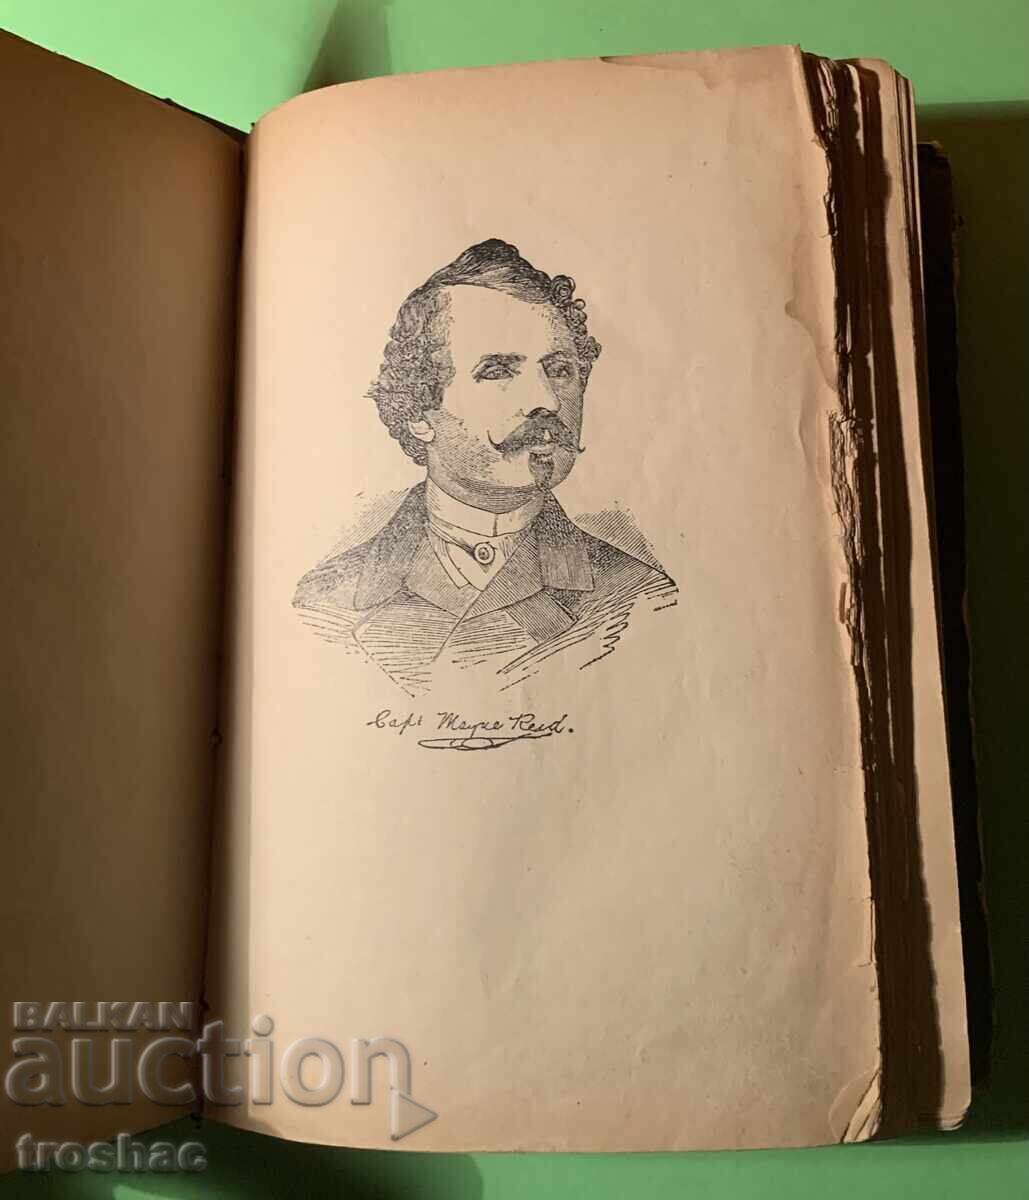 Capt Mayne Reid.
BALKAN
auction
troshac